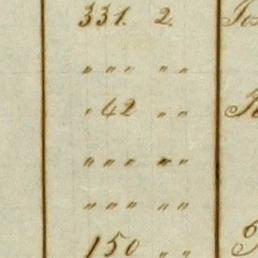 331. 2.
„ „ „ „ „
„ 42 „ „
„ „ „ „ „
„ „ „ „ „
150 „ „